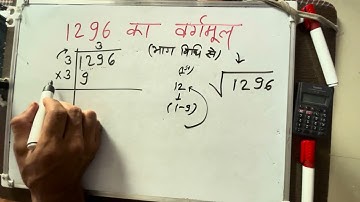 1296 का वर्गमूल
(भाग विधि से)
3
3 1296
×3 9
12
(1-9)
√1296